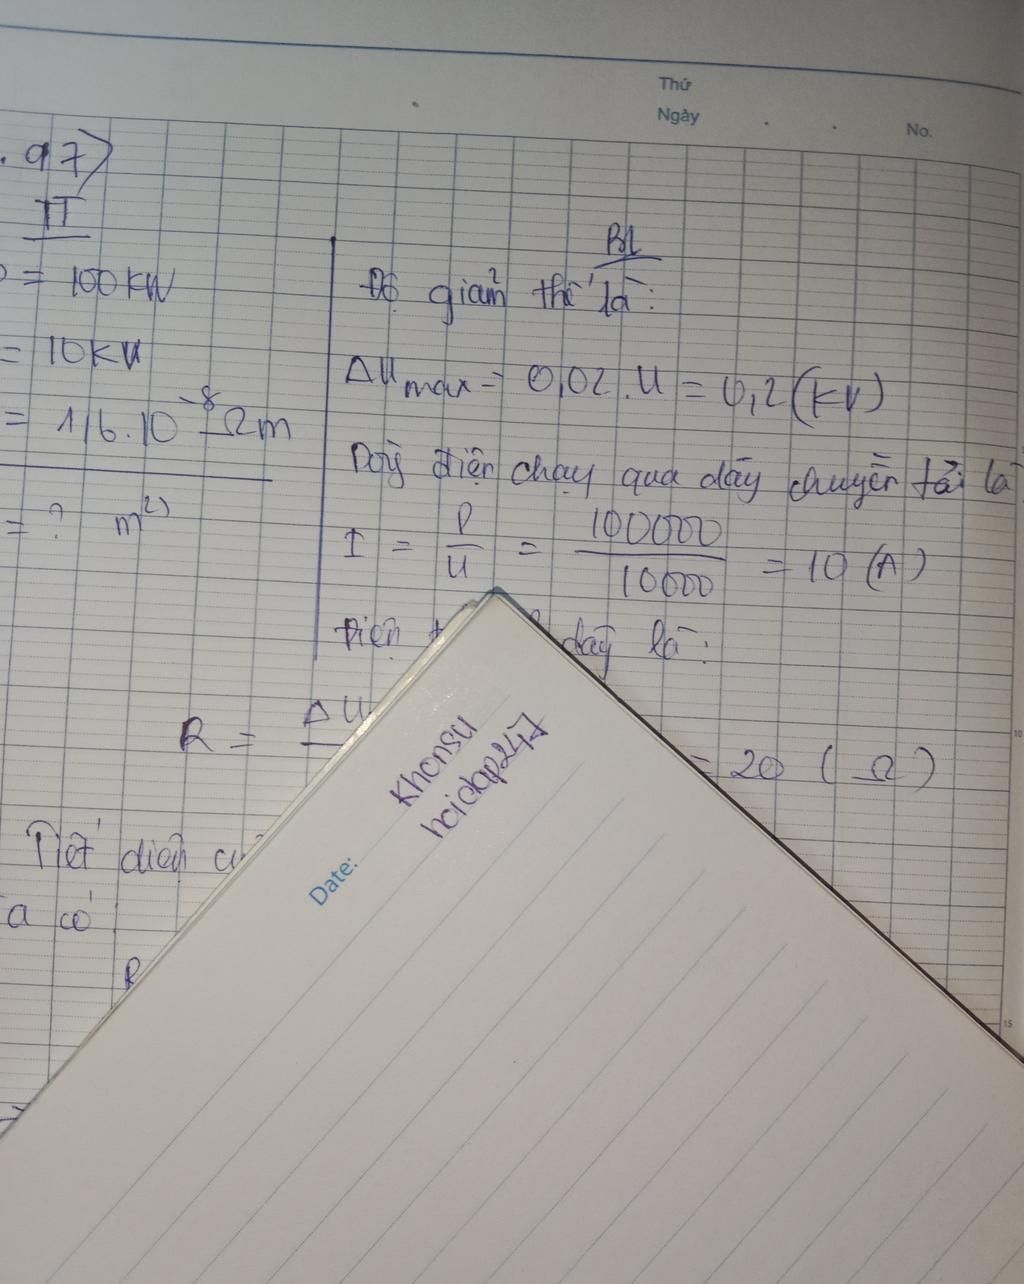 Thứ
Ngày
No.
.97)
TT
= 100KW
= 10KV
= 1,6.10⁻⁸ Ωm
= ? m²)
BL
Độ giảm thế là:
ΔUmax = 0,02.U = 0,2(KV)
Dòng điện chạy qua dây chuyền tải là
I = P/U = 100000/10000 = 10 (A)
Điện
dây là:
R = ΔU
= 20 (Ω)
Tiết diện
a có
R
Khonsu
hoidap247
Date:
10
15